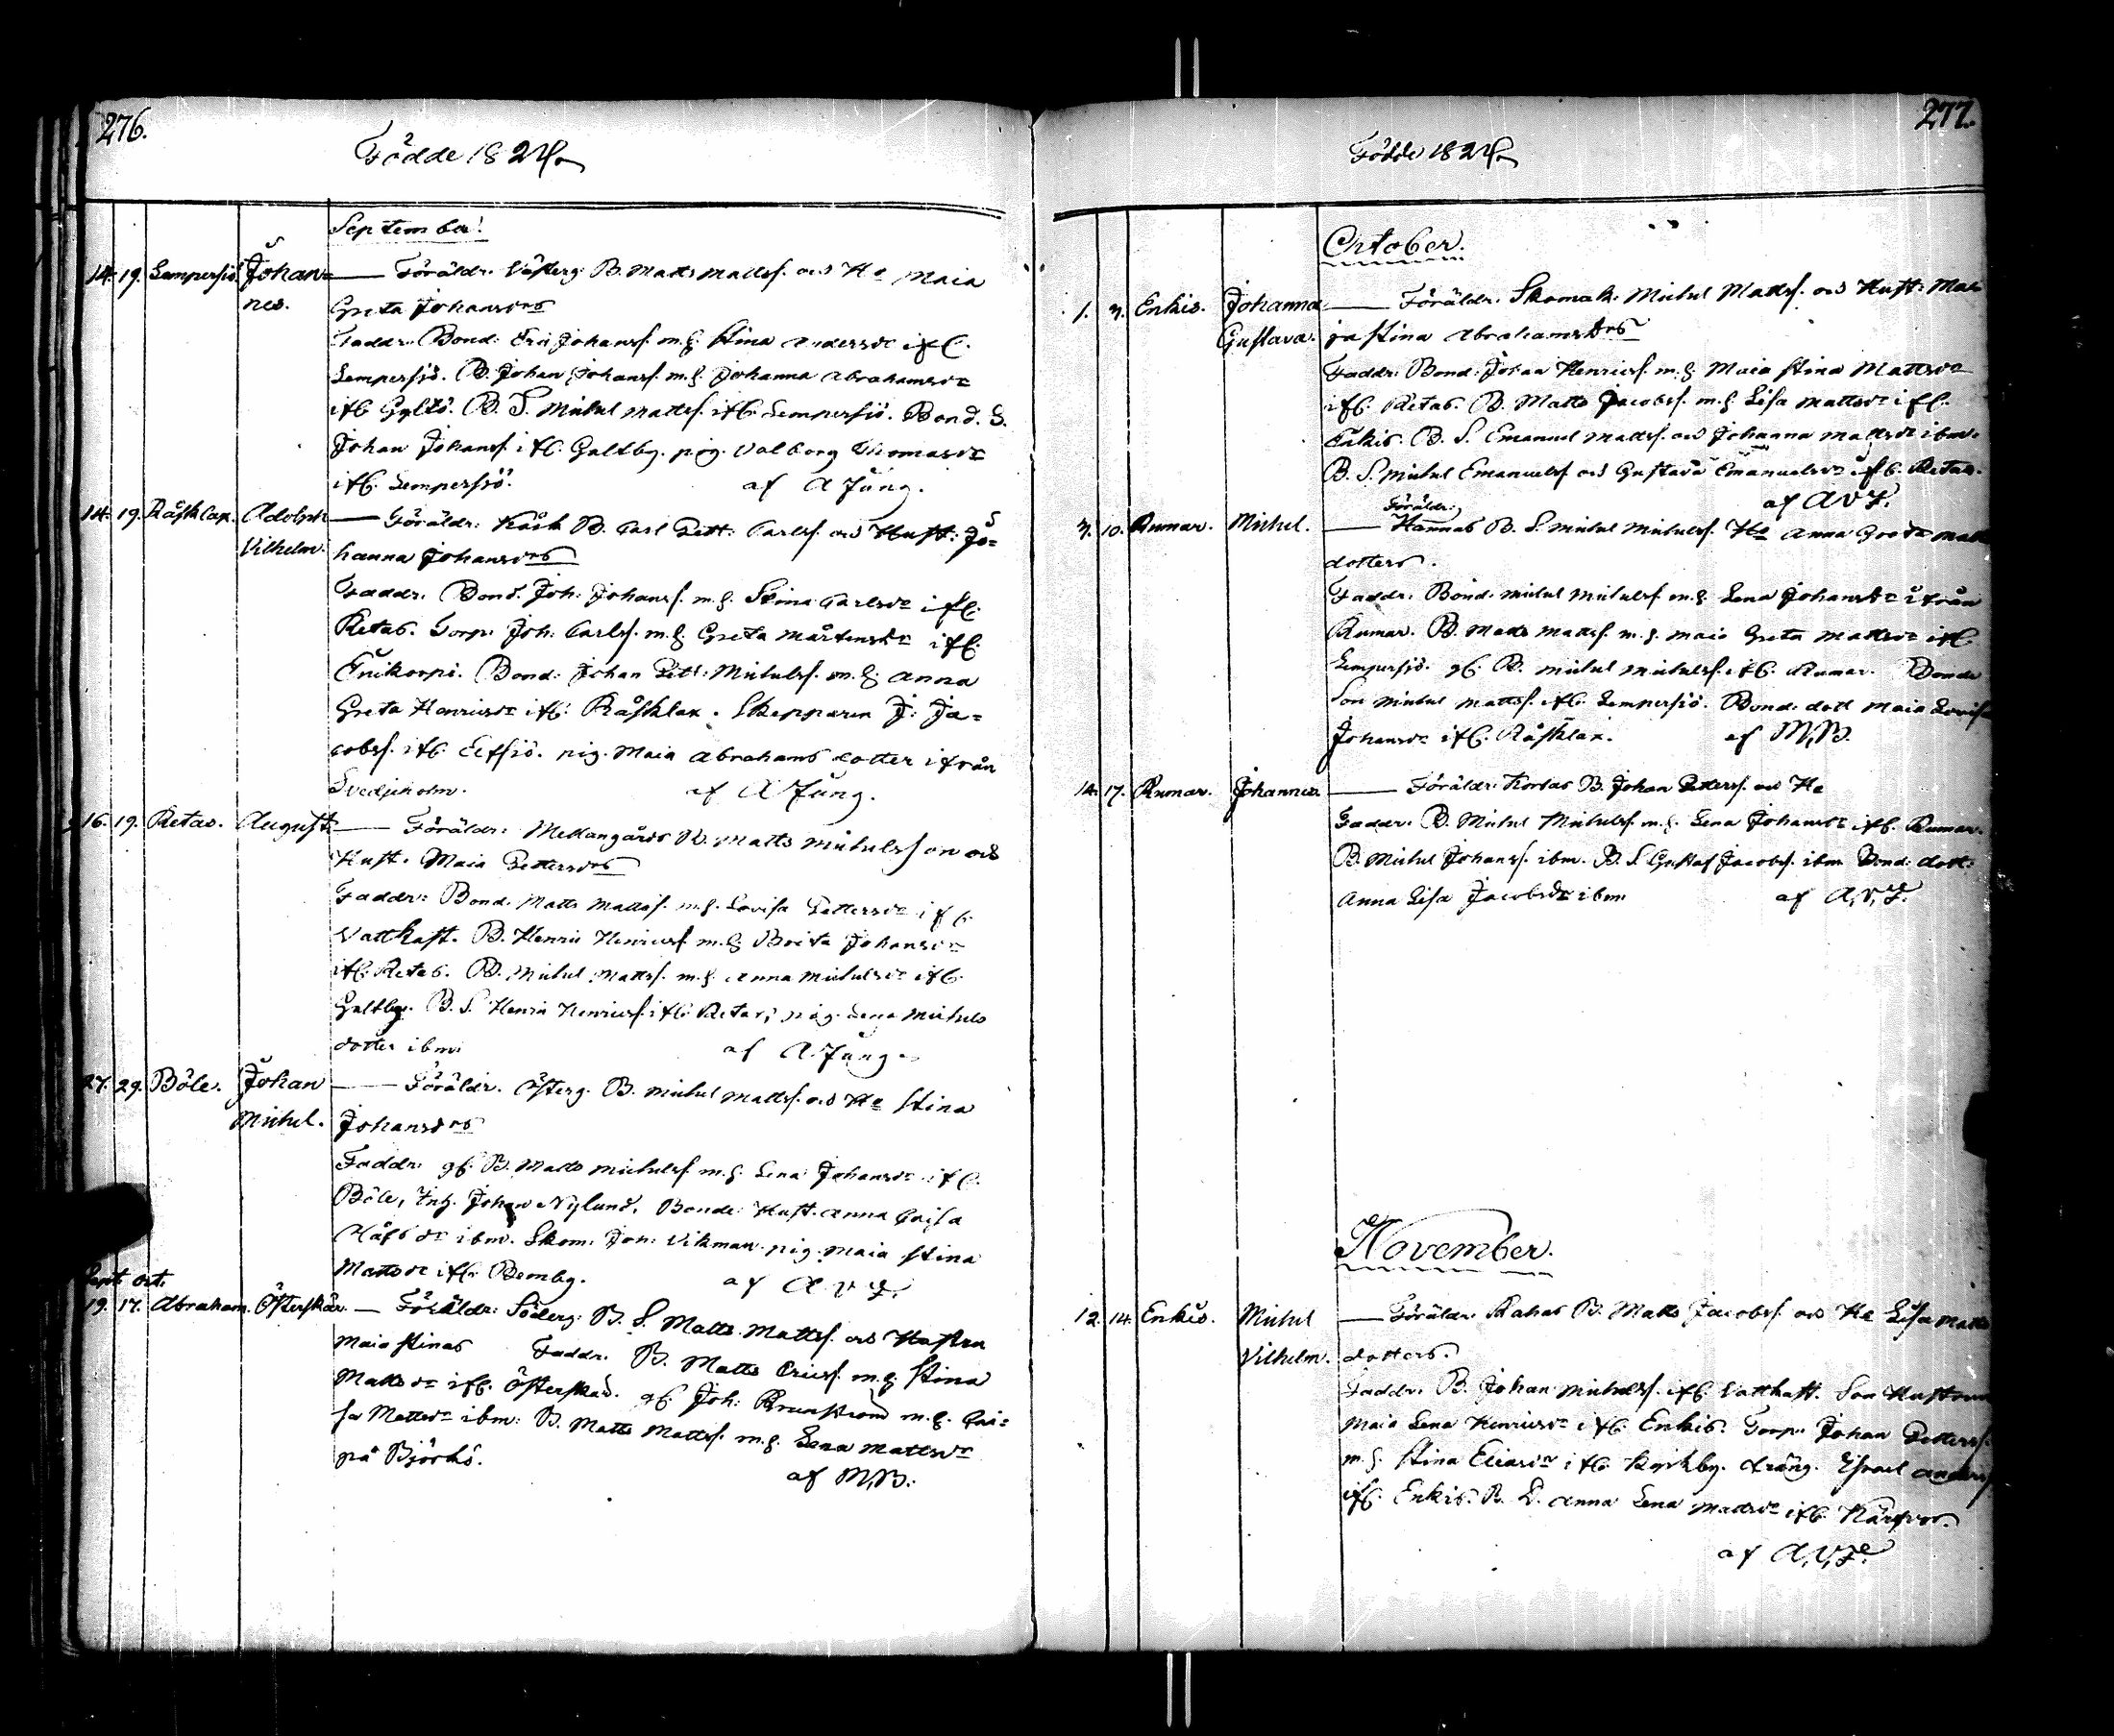 276.
Födde 1824.
September.
14. 19. Lempersjö. Johan= — Föräldr. Västerg. B. Matts Mattss. och Ha Maia
nes. Greta Johansdrs
Faddr. Bond. Eric Johanss. m. h. Stina Andersdr ifr.
Lempersjö. B. Johan Johanss. m. h. Johanna Abrahamsdr
ifr. Gyltö. B. S. Michel Mattss. ifr. Lempersjö. Bond. S.
Johan Johanss. ifr. Galtby. pig. Valborg Thomasdr
ifr. Lempersjö. af A Jung.
14. 19. Råsklax. Adolph — Föräldr: B. Carl Pett: Carlss. och Hust: Jo=
Vilhelm. hanna Johansdrs
Faddr. Bond. Joh: Johanss. m. h. Stina Carlsdr ifr.
Retas. Torp. Joh: Carlss. m. h. Greta Mårtensdr ifr.
Bond: Johan Pett: Michelss. m. h. Anna
Greta Henricsdr ifr. Råsklax. Skepparen J: Ja=
cobss. ifr. pig. Maia Abrahams dotter ifrån
af A Jung.
16. 19. Retas. August. — Föräldr: Mellangårds B. Matts Michelsson och
Hust. Maia Pettersdrs
Faddr: Bond. Matts Mattss. m. h. Lovisa Pettersdr ifr.
Vattkast. B. Henric Henricss. m. h. Brita Johansdr
ifr. Retas. B. Michel Mattss. m. h. Anna Michelsdr ifr.
Galtby. B. S. Henric Henricss. ifr. Retas, pig. Lena Michels
dotter ibm. af A. Jung.
27. 29. Böle. Johan — Föräldr. Österg. B. Michel Mattss. och Ha Stina
Michel. Johansdrs
Faddr. gf. B. Matts Michelss. m. h. Lena Johansdr ifr.
Böle, Inh. Johan Nylund. Bonde Hust. Anna Caisa
ibm. Skom: Joh: Vikman. pig. Maia Stina
Mattsdr ifr. Benby. af A. V. Z.
Sept. oct.
19. 17. Abraham. Österskär. — Föräldr: Söderg. B. S. Matts Mattss. och Hustru
Maia Stinas Faddr. B. Matts Ericss. m. h. Stina
Mattsdr ifr. Österskär. gf. Joh: m. h. Cai=
sa Mattsdr ibm: B. Matts Mattss. m. h. Lena Mattsdr
på Björkö.
af M, B.
277.
Födde 1824.
October.
1. 3. Enkis. Johanna — Föräldr. Skomak. Michel Mattss. och Hust: Ma
Gustava. ja Stina Abrahamsdrs
Faddr: Bond: Johan Henricss. m. h. Maia Stina Mattsdr
ifr. Retas. B. Matts Jacobss. m. h. Lisa Mattsdr ifr.
Enkis. B. S. Emanuel Mattss. och Johanna Mattsdr ibm.
B. S. Michel Emanuelss. och Gustava Emanuelsdr ifr. Retas.
af A V Z.
Föräldr:
3. 10. Rumar. Michel. — Hannas B. S. Michel Michelss. Ha Anna Greta Matts
dotters.
Faddr. Bond. Michel Michelss. m. h. Lena Johansdr ifrån
Rumar. B. Matts Mattss. m. h. Maia Greta Mattsdr ifr.
Lempersjö. gf. B. Michel Michelss. ifr. Rumar. Bonde
Son Michel Mattss. ifr. Lempersjö. Bond. dott. Maia Lovisa
Johansdr ifr. Råsklax. af M, B.
14. 17. Rumar. Johannes. — Föräldr: Kordas B. Johan Petterss. och Ha
Faddr. B. Michel Michelss. m. h. Lena Johansdr ifr. Rumar.
B. Michel Johanss. ibm. B. S. Gustaf Jacobss. ibm Bond. dott:
Anna Lisa Jacobsdr ibm. af A, V, Z.
November.
12. 14. Enkis. Michel — Föräldr. Rahas B. Matts Jacobss. och Ha Lisa Matts
Vilhelm. dotters.
Faddr. B. Johan Michelss. ifr. Vattkast. Son Hustrun
Maia Lena Henricsdr ifr. Enkis. Torp: Johan Petterss.
m. h. Stina Eliasdr ifr. dräng. Israel Anderss
ifr. Enkis. B. D. Anna Lena Mattsdr ifr. Kärfvor.
af A, V, Z.